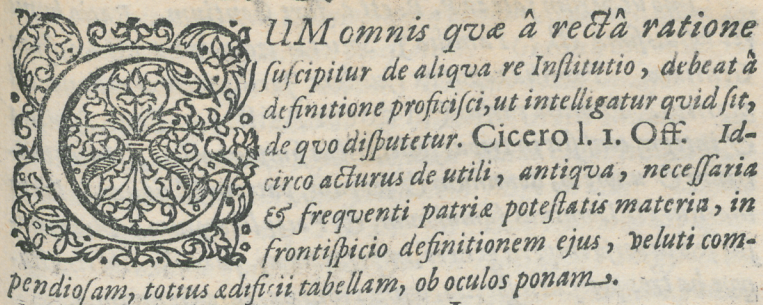 CUM omnis qvæ â rectâ ratione
ſuſcipitur de aliqva re Inſtitutio, debeat â
definitione proficiſci, ut intelligatur qvid ſit,
de qvo diſputetur. Cicero l. 1. Off. Id-
circo acturus de utili, antiqva, neceſſaria
& freqventi patriæ poteſtatis materia, in
frontiſpicio definitionem ejus, veluti com-
pendioſam, totius ædificii tabellam, ob oculos ponam.